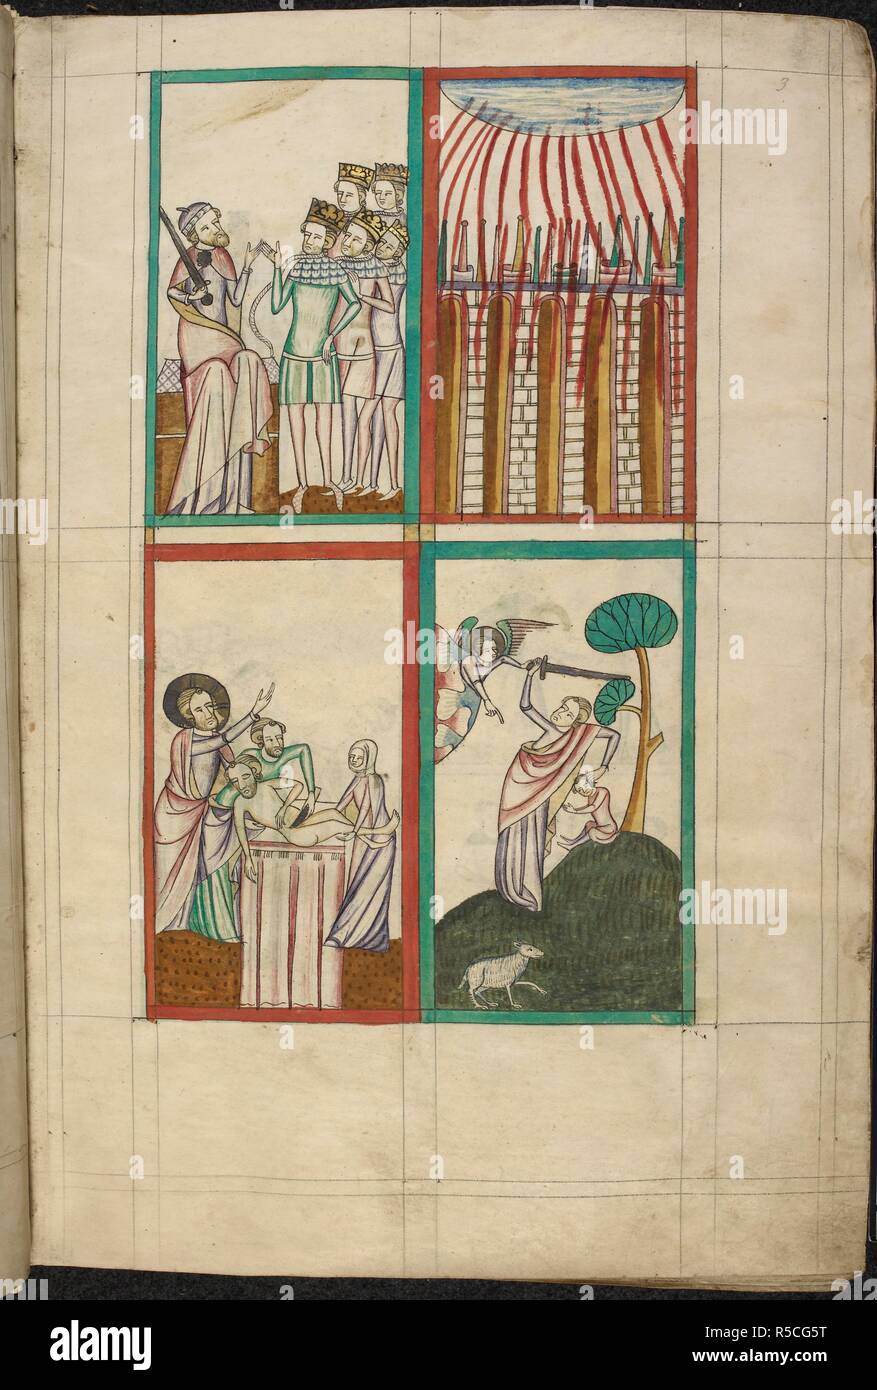 3
alamy
alamy
Image ID: R5CG5T
www.alamy.com